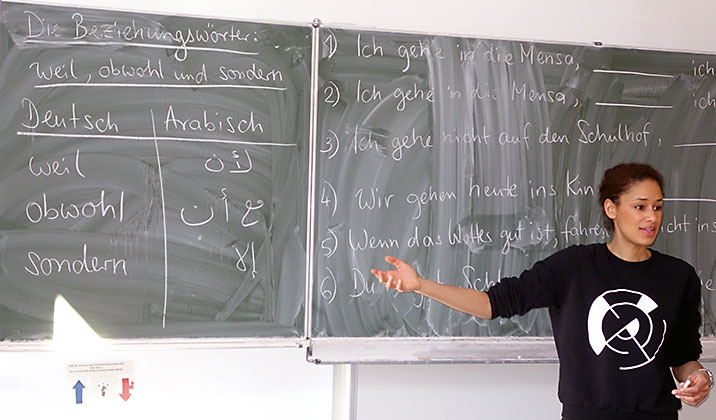 Die Beziehungswörter:
weil, obwohl und sondern
Deutsch Arabisch
weil لأن
obwohl مع أن
sondern إلا
1) Ich gehe in die Mensa, ich
2) Ich gehe in die Mensa, ich
3) Ich gehe nicht auf den Schulhof,
4) Wir gehen heute ins Kin
5) Wenn das Wetter gut ist, fahren nicht ins
6) Du